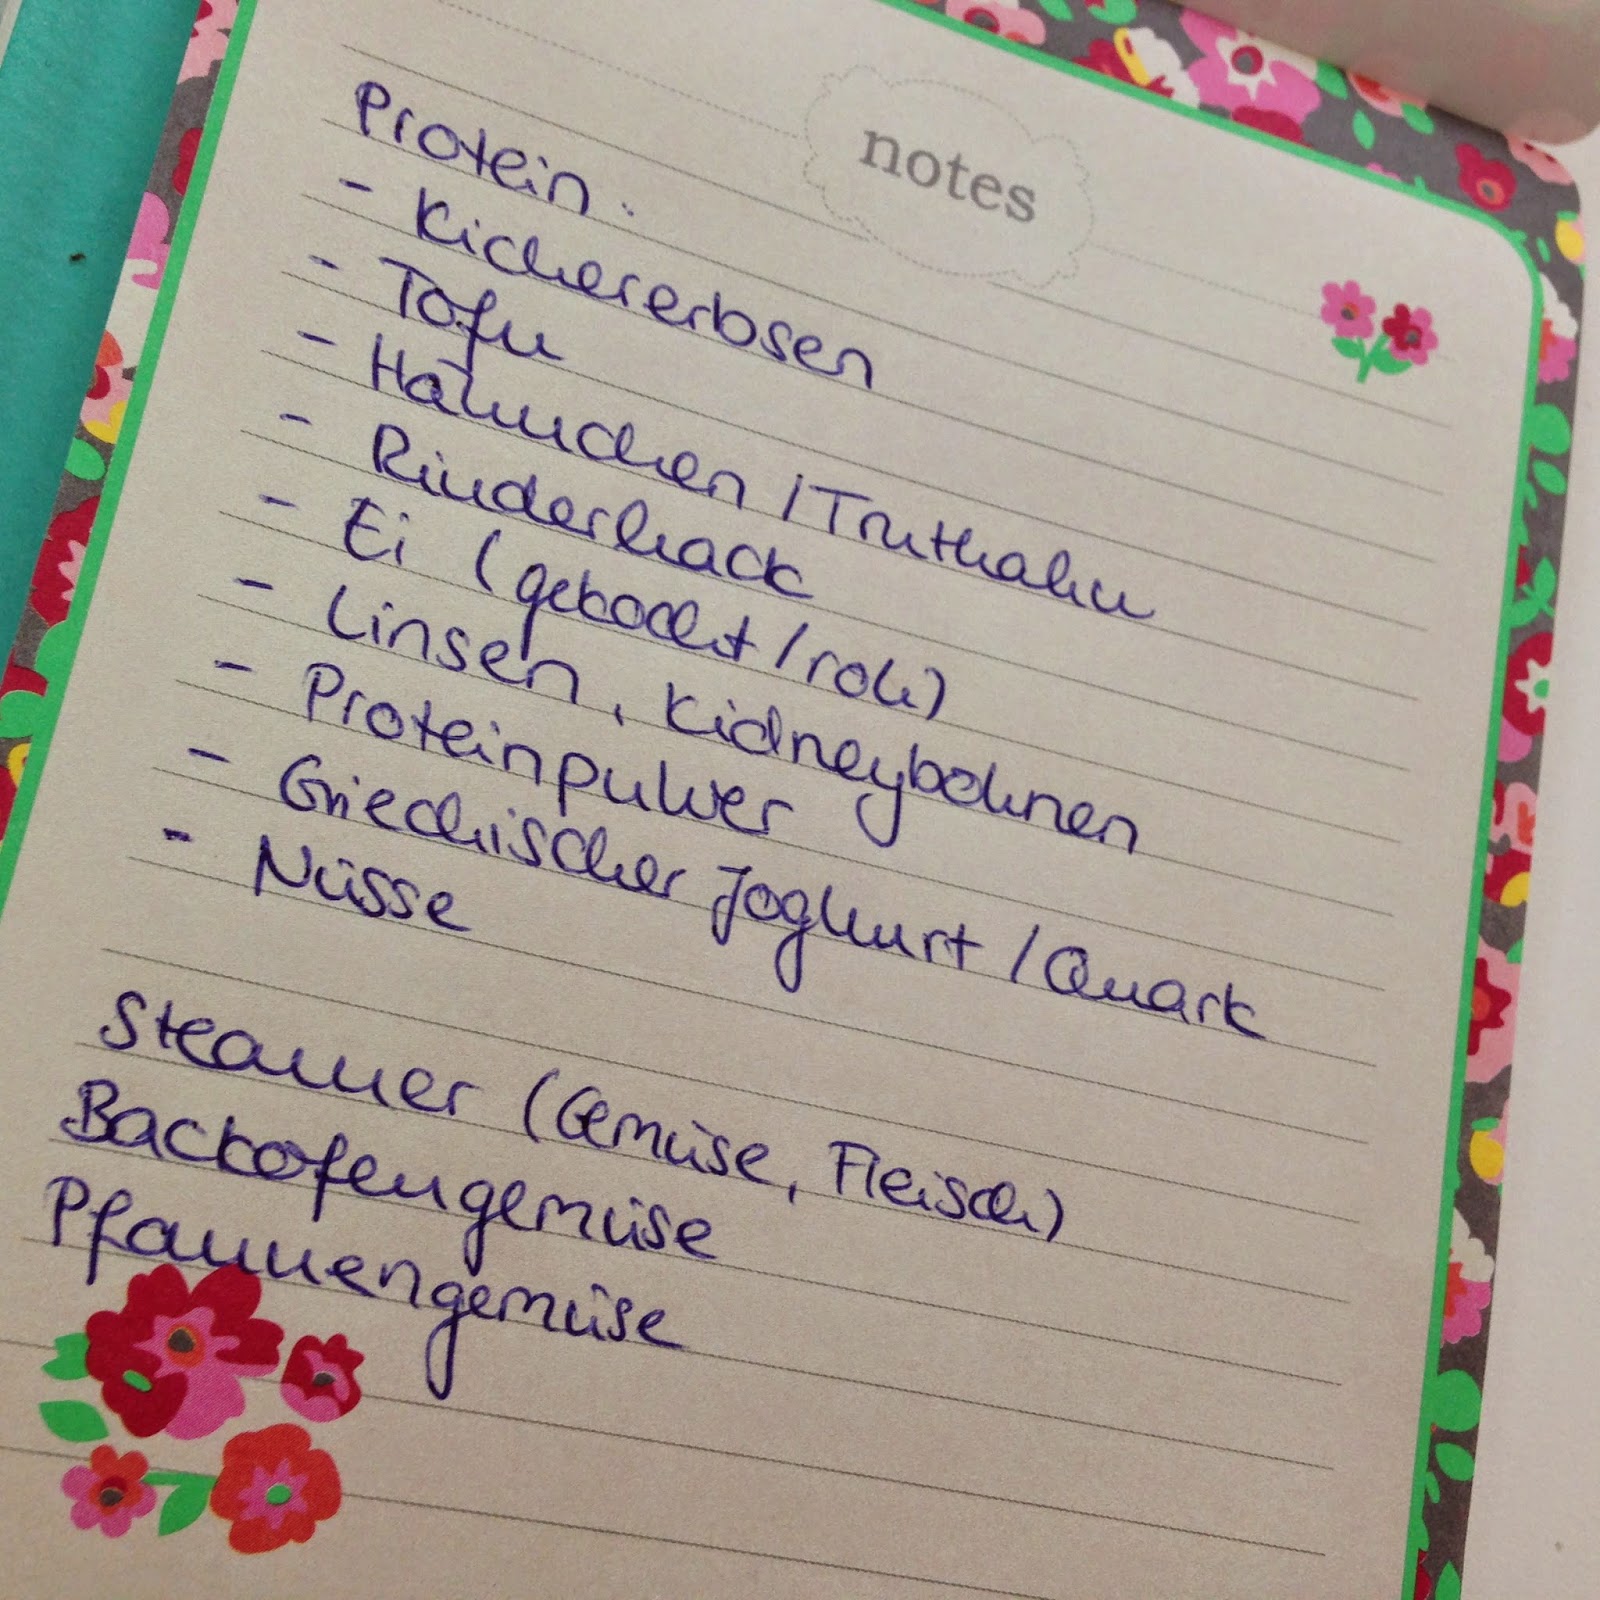 notes
Protein:
- Kichererbsen
- Tofu
- Hähnchen / Truthahn
- Rinderhack
- Ei (gekocht / roh)
- Linsen, Kidneybohnen
- Proteinpulver
- Griechischer Joghurt / Quark
- Nüsse
Steamer (Gemüse, Fleisch)
Backofengemüse
Pfannengemüse